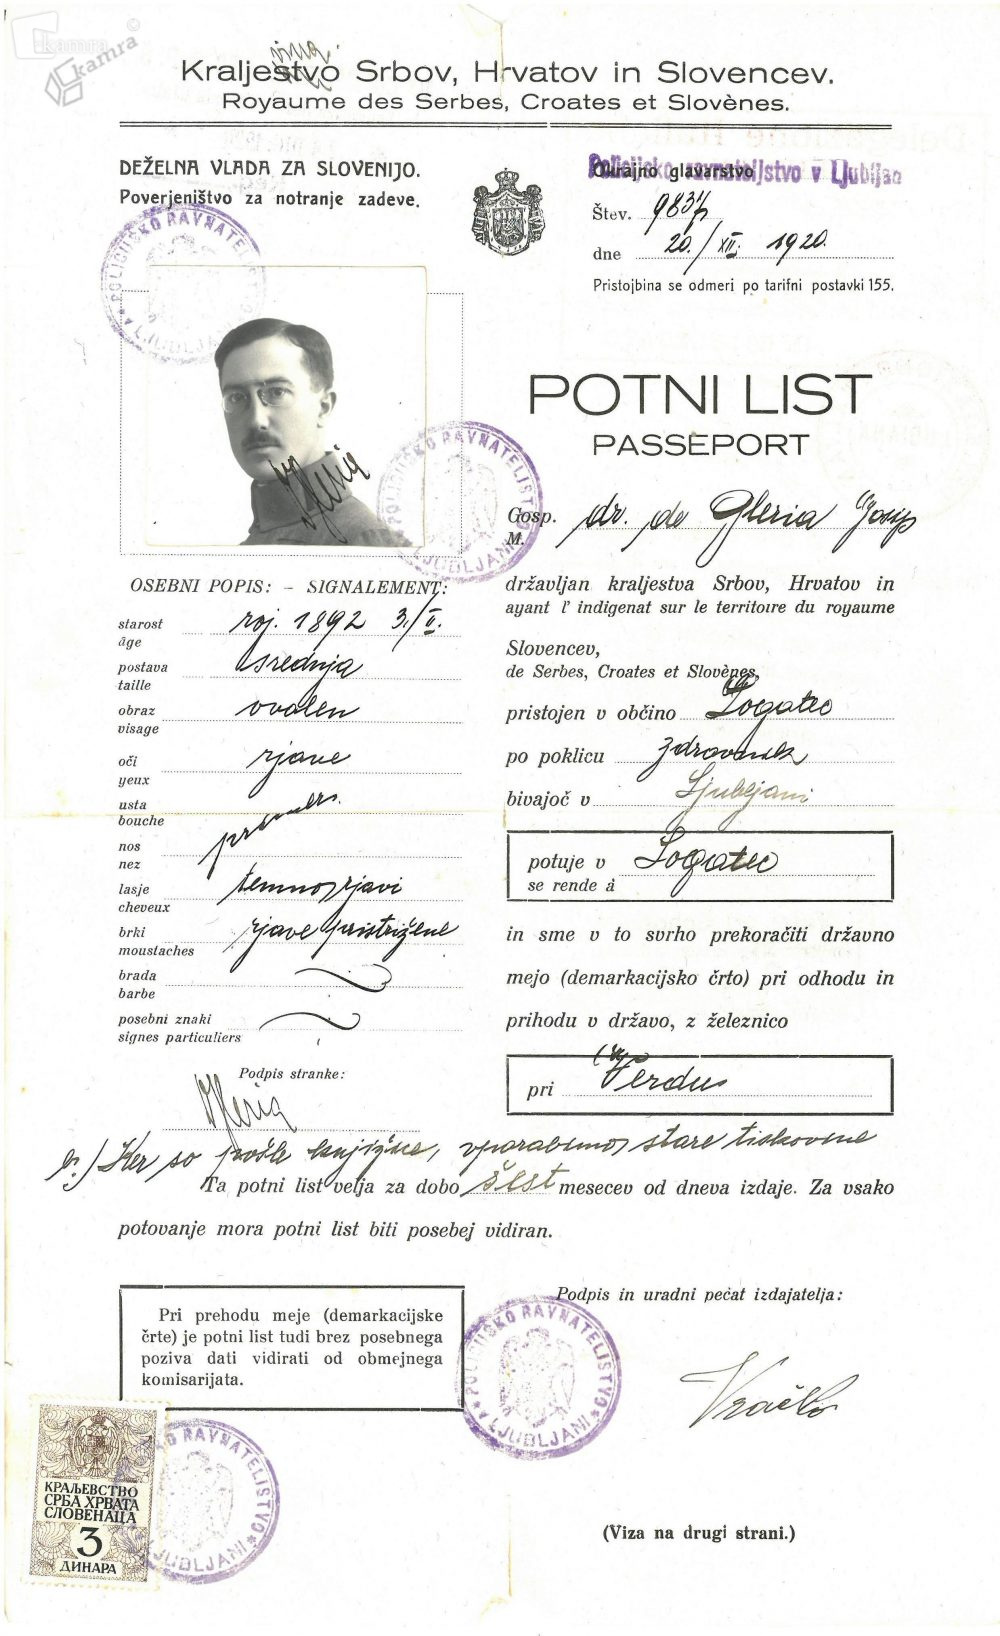 kamra
kamra
Kraljestvo Srbov, Hrvatov in Slovencev.
Royaume des Serbes, Croates et Slovènes.
DEŽELNA VLADA ZA SLOVENIJO.
Poverjeništvo za notranje zadeve.
Okrajno glavarstvo
Policijsko ravnateljstvo v Ljubljani
Štev. 9831/
dne 20./XII. 1920.
Pristojbina se odmeri po tarifni postavki 155.
POLICIJSKO RAVNATELJSTVO
LJUBLJANI
POTNI LIST
PASSEPORT
POLICIJSKO RAVNATELJSTVO
LJUBLJANI
Gosp. dr. de Gleria Josip
M.
OSEBNI POPIS: – SIGNALEMENT:
starost roj. 1892 3./II.
âge
postava srednja
taille
obraz ovalen
visage
oči rjave
yeux
usta
bouche
nos
nez
lasje temnorjavi
cheveux
brki rjave pristrižene
moustaches
brada
barbe
posebni znaki
signes particuliers
Podpis stranke:
državljan kraljestva Srbov, Hrvatov in
ayant l' indigenat sur le territoire du royaume
Slovencev,
de Serbes, Croates et Slovènes,
pristojen v občino Logatec
po poklicu zdravnik
bivajoč v Ljubljani
potuje v Logatec
se rende á
in sme v to svrho prekoračiti državno
mejo (demarkacijsko črto) pri odhodu in
prihodu v državo, z železnico
pri Verdu
Ker so pošle knjižice, uporabimo stare tiskovine
Ta potni list velja za dobo šest mesecev od dneva izdaje. Za vsako
potovanje mora potni list biti posebej vidiran.
Pri prehodu meje (demarkacijske
črte) je potni list tudi brez posebnega
poziva dati vidirati od obmejnega
komisarijata.
Podpis in uradni pečat izdajatelja:
POLICIJSKO RAVNATELJSTVO
LJUBLJANI
КРАЉЕВСТВО
СРБА ХРВАТА
СЛОВЕНАЦА
3
ДИНАРА
RAVNATELJSTVO
LJUBLJANI
(Viza na drugi strani.)